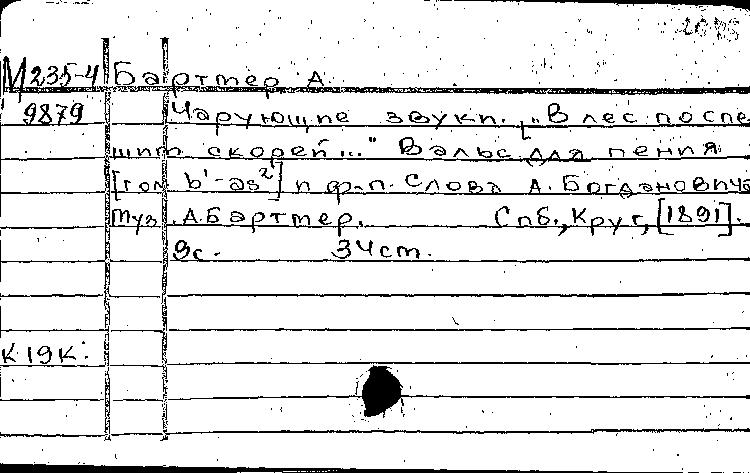 М235-4 Бартмер А.
9879 Чарующие звуки. ["В лес поспе
шит скорей..." Вальс для пения
[гол b'-as²] и ф-п. Слова А. Богдановича
Муз. А. Бартмер. Спб., Круг, [1891].
9с. 34ст.
К 19к: